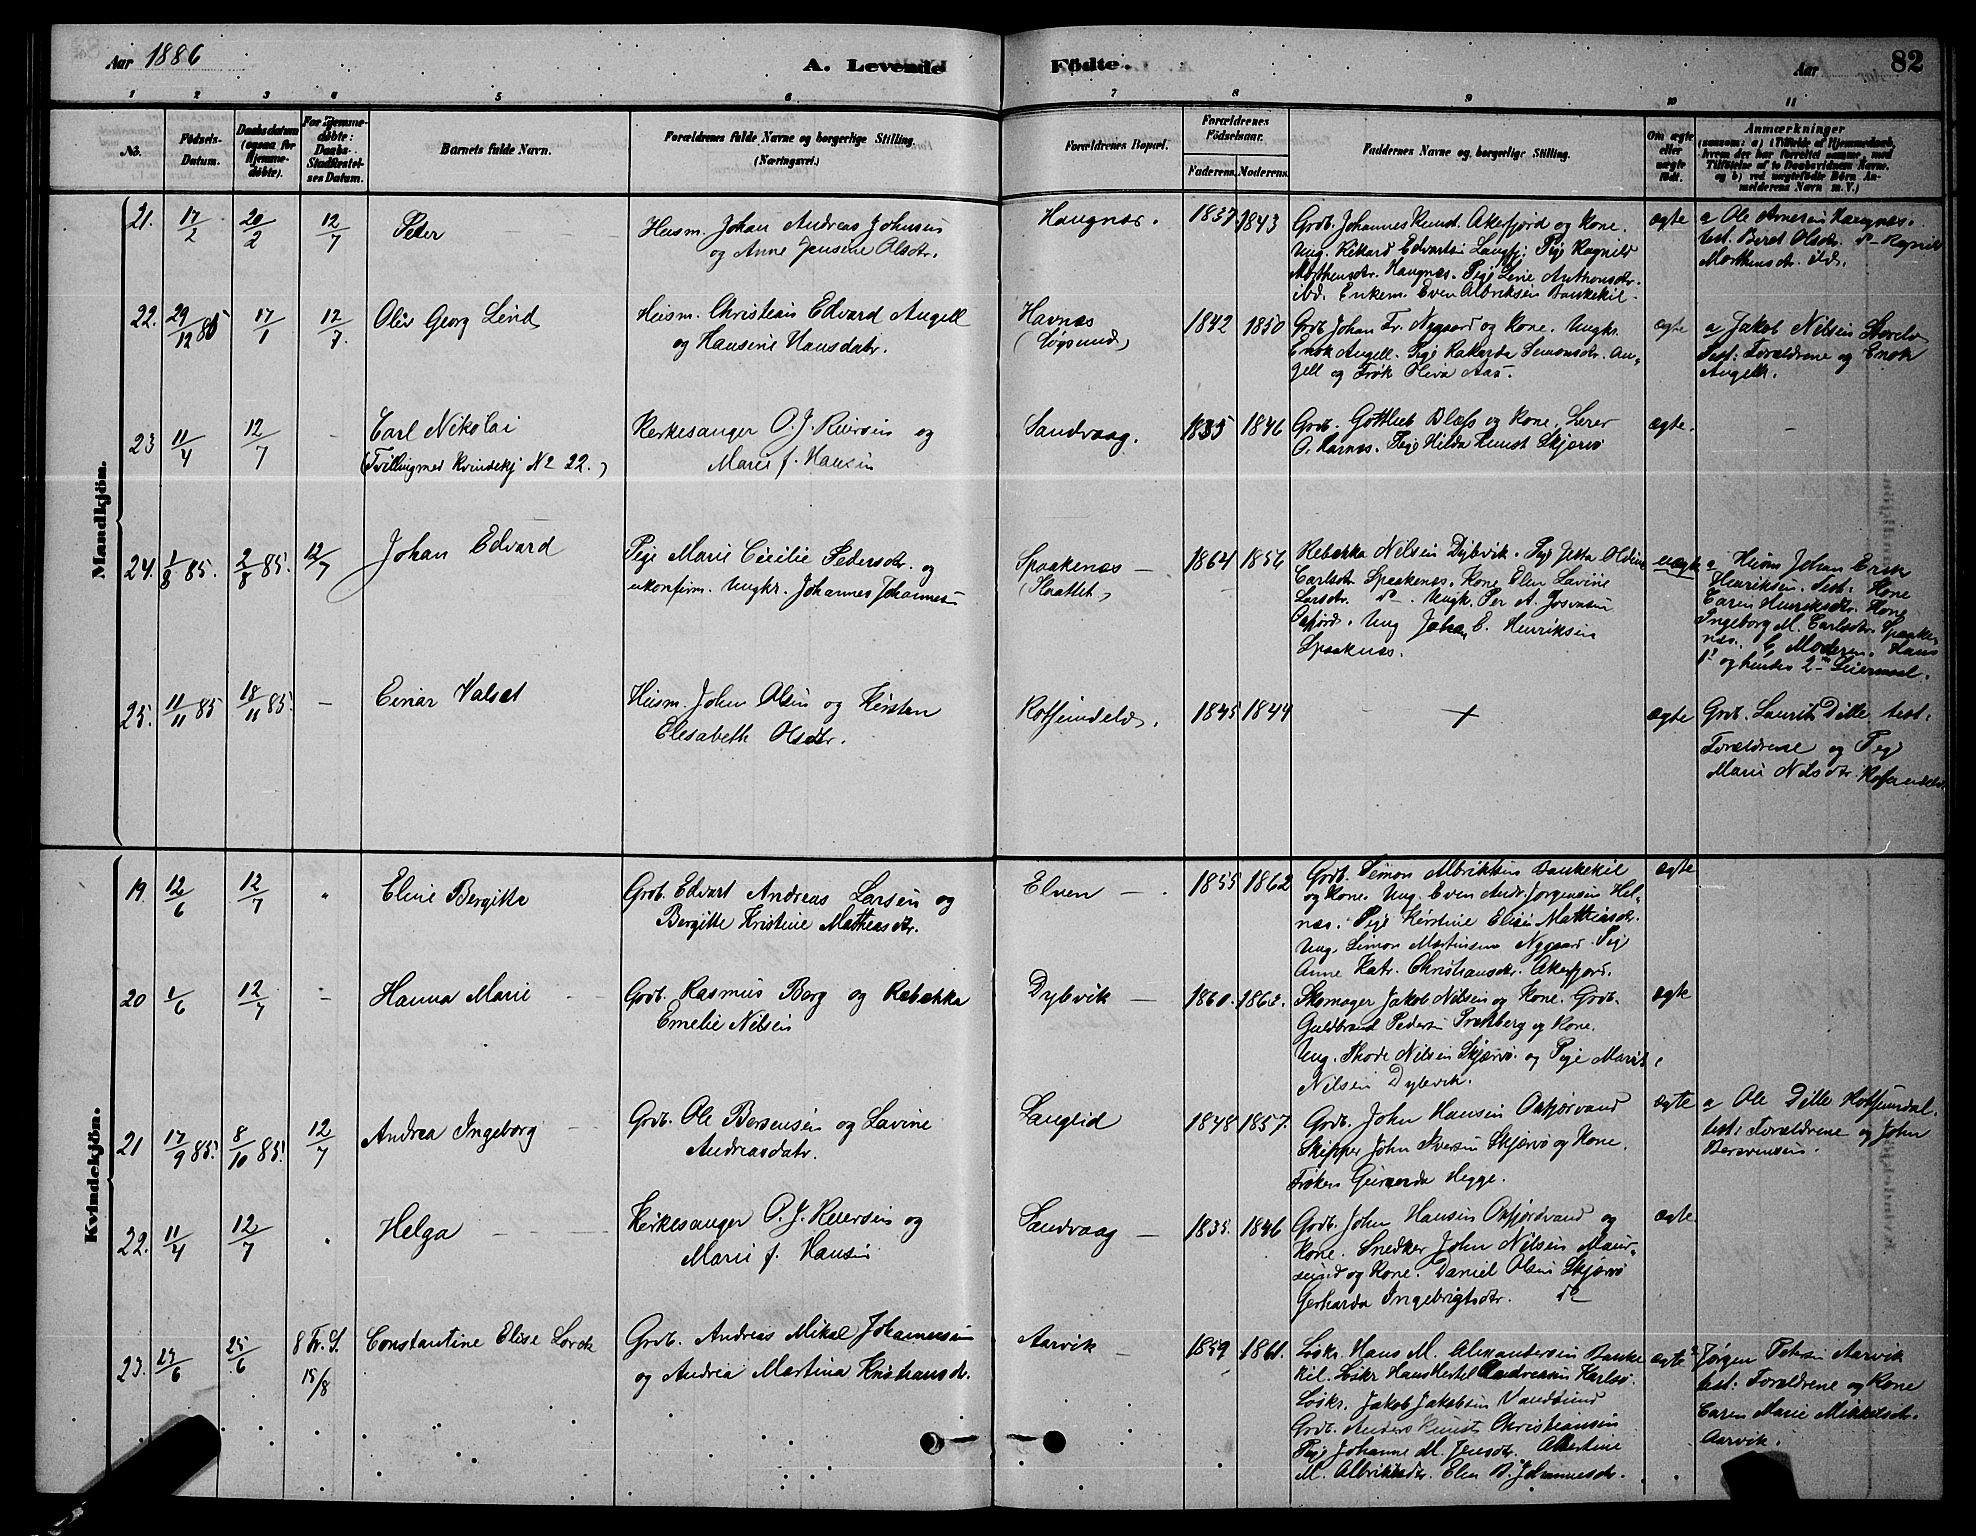 Aar 1886
A. Levende Födte.
Aar
82
1 2 3 4 5 6 7 8 9 10 11
No.
Födsels-Datum.
Daabsdatum (ogsaa for Hjemmedöbte).
For Hjemmedöbte: Daabs-Stadfæstelses Datum.
Barnets fulde Navn.
Forældrenes fulde Navne og borgerlige Stilling. (Næringsvei.)
Forældrenes Bopæl.
Forældrenes Födselsaar.
Faderens. Moderens.
Faddernes Navne og borgerlige Stilling.
Om ægte eller uægte födt.
Anmærkninger
(saasom: a) i Tilfælde af Hjemmedaab, hvem der har forrettet samme, med Tilföielse af to Daabsvidners Navne. og b) ved uægtefödte Börn Anmelderens Navn m. V.)
Mandkjön.
21. 17/2 20/2 12/7 Peter
Husm. Johan Andreas Johnsen
og Anne Jensine Olsdtr.
Haugnæs. 1837 1843
Grdb. Johannes Knut. Akefjord og Kone.
Ung. Rikard Edvartsen Langfj: Pige Ragnild
Morthensdtr. Haugnæs. Pige Lene Anthonsdtr.
ibd. Enkem. Even Albriksen Bankekil.
ægte
a Ole Arnesen Haugnæs.
test. Beret Olsdtr. do Ragnild
Morthensdtr. ibd.
22. 29/12 85 17/1 12/7. Oliv Georg Lind
Husm. Christian Edvard Angell
og Hansine Hansdatr.
Havnæs
(Løgsund) 1842 1850
Grdb. Johan Fr. Nygaard og Kone. Ungkr.
Enok Angell. Pige Rakarda Simonsdtr. An-
gell og Frøk Oliva Aas.
ægte
a Jakob Nilsen Storelv
Test: Forældrene og Enok
Angell.
23 11/4 12/7 - Carl Nikolai
(Tvilling med Kvindekj No 22.)
Kirkesanger O. J. Reiersen og
Marie f. Hansen
Sandvaag. 1835 1846
Grdb. Gottlieb Blæss og Kone, Lærer
O. Harnæs. Pige Hilda Kunst Skjervø
ægte. -
24. 1/8 85. 2/8 85. 12/7 Johan Edvard
Pige Marie Cicilie Pedersdtr. og
ukonfirm. Ungkr. Johannes Johannesen
Spaakenæs
(Slaattet) 1864 1856
Rebekka Nilsen Dybvik. Pige Jetta Oldine
Carlsdtr Spaakenæs. Kone Elen Lavine
Larsdtr. do. Ungk. Per A. Josvasen
Oxfjord. Ung Johan E. Henriksen
Spaaknæs.
uægte
a Husm Johan Erik
Henriksen. Test: Kone
Caren Henriksdtr. Kone
Ingeborg M. Carlsdtr. Spaaken
næs. b Moderen. Hans
1ste og hendes 2det Leiermaal.
25. 11/11 85 18/11 85. - Einar Valset
Husm. John Olsen og Kirsten
Elesabeth Olsdtr.
Rotsundelv. 1845 1844
+ ægte
Grdb. Laurits Dille test:
Forældrene og Pige
Marie Nilsdtr. Rotsundelv.
Kvindekjön.
19. 12/6 12/7 " Eline Bergitte
Grdb. Edvart Andreas Larsen og
Bergitte Kristine Mathiasdtr.
Elven 1855 1862
Grdb. Simon Albriktsen Bankekil
og Kone. Ung. Even Andr. Jørgensen Hel-
næs. Pige Kirstine Elise Mathiasdtr.
Ung. Simon Martinsen Nygaard. Pige
Anne Katr. Christiansdtr. Akefjord.
ægte
20 1/6 12/7 - Hanna Marie
Grdb. Rasmus Berg og Rebekka
Emelie Nilsen
Dybvik 1860. 1862.
Skomager Jakob Nilsen og Kone. Grdb.
Guldbrand Pedersen Svensberg og Kone.
Ung. Thode Nilsen Skjærvø. og Pige Marit
Nilsen Dybvik.
ægte
21 17/9 85. 8/10 85. 12/7 Andrea Ingeborg
Grdb. Ole Bersvensen og Lavine
Andreasdatr.
Langlid 1848 1857.
Grdb. John Hansen Oxfjorvand
Skipper John Iversen Skjærvø og Kone.
Frøken Gurianda Hegge.
ægte
a Ole Dille Rotsundal.
test: Forældrene og John
Bersvensen.
22. 11/4 12/7 " Helga
Kirkesanger O. J. Reiersen og
Marie f. Hansen
Sandvaag 1835. 1846
Grdb. John Hansen Oxfjordvand og
Kone. Snedker John Nilsen Maur-
sund og Kone. Daniel Olsen Skjærvø
Gerharda Ingebrigtsdtr. do
ægte
23. 23/6 25/6 8 Tr. S. 15/8 Constantine Elise Lorck
Grdb. Andreas Mikal Johannessen
og Andrea Martina Kristiansdtr.
Aarvik 1859 1861.
Løskr. Hans M. Alexandersen Banke
kil. Løskr Hans Hertel Andreasen Karlsø.
Løskr. Jakob Jakobsen Vandsund
Grdb. Anders Kunst Christiansen
Pige Johanne M. Jensdtr. Albertine
M. Albriktsdtr. Elen B. Johannesdtr.
ægte
a Jørgen Petersen Aarvik
test: Forældrene og Kone
Caren Marie Mikkelsdtr.
Aarvik.